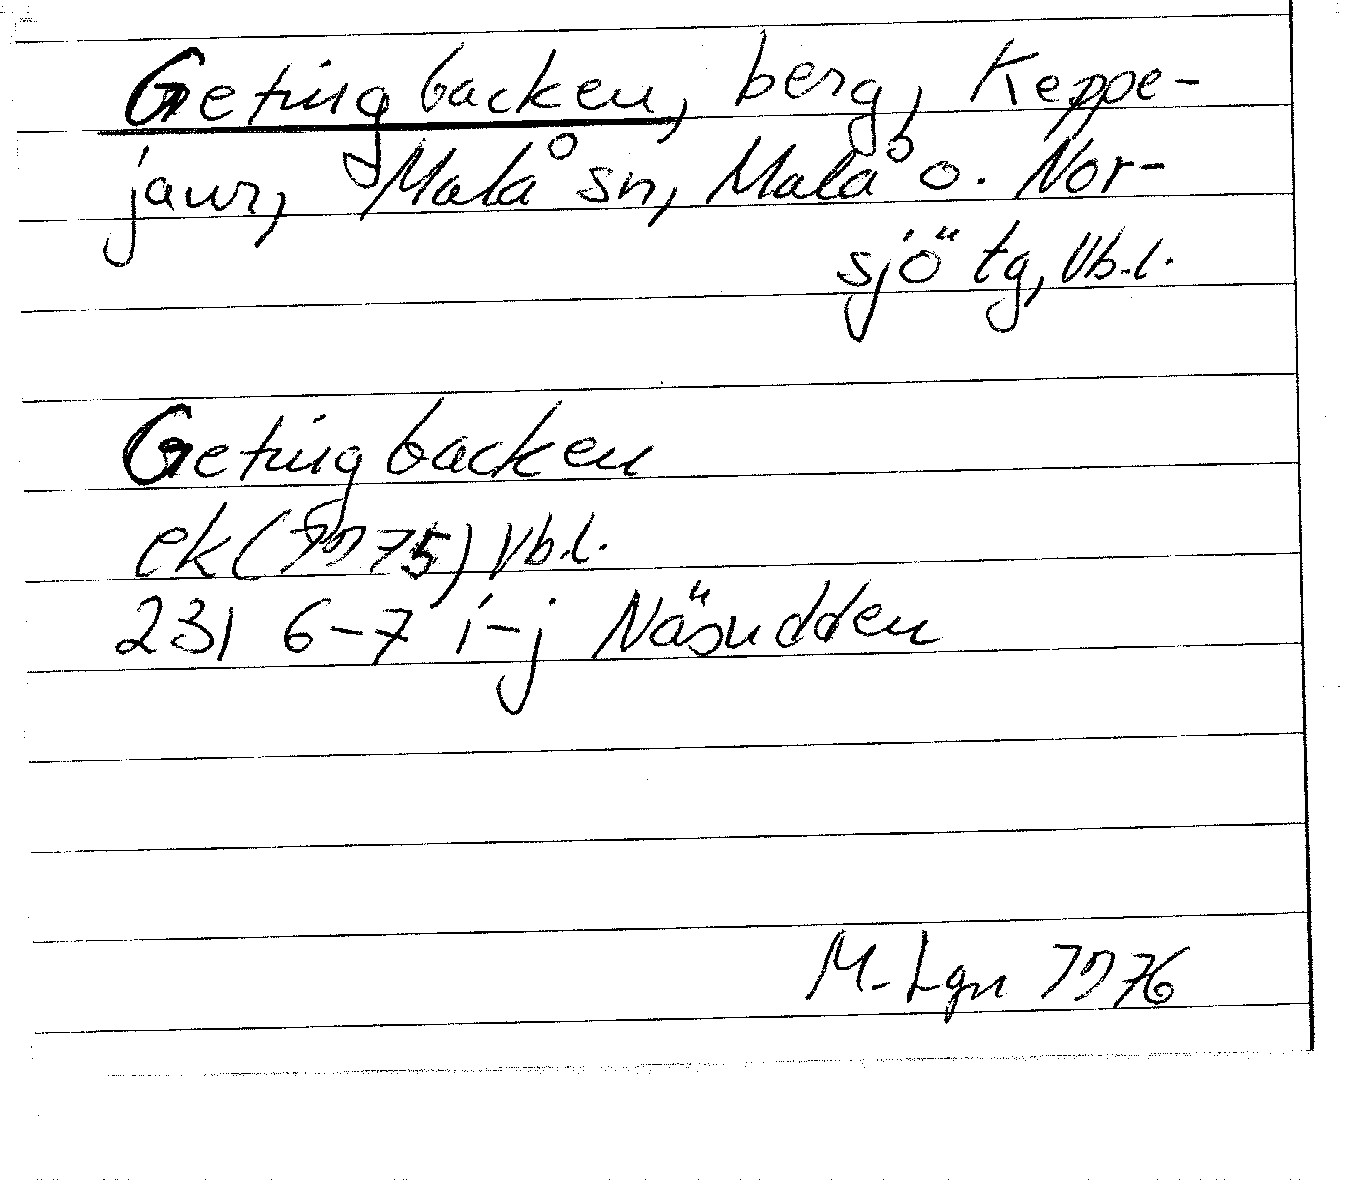 Getingbacken, berg, Keppe-
jaur, Malå sn, Malå o. Nor-
sjö tg, Vb.l.
Getingbacken
ek (1975) Vb.l.
231 6-7 i-j Näsudden
M-Lgn 1976